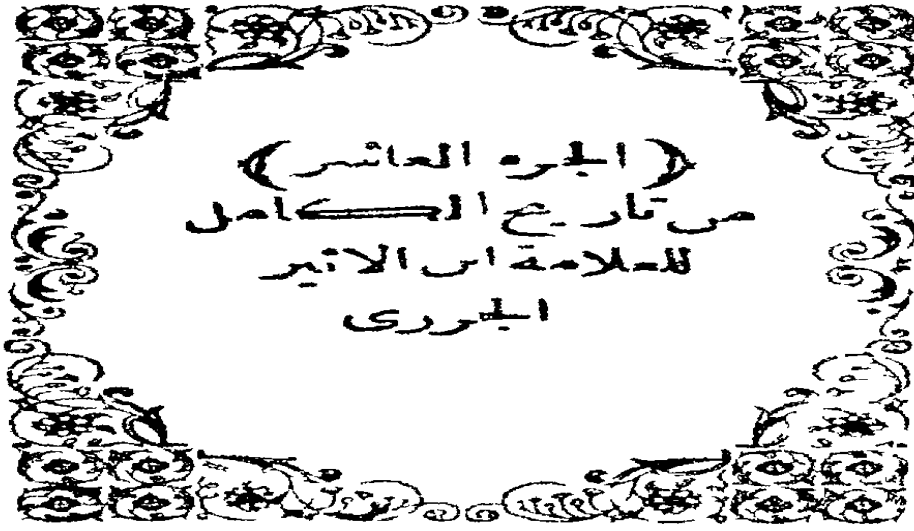 (الجزء العاشر)
من تاريخ الكامل
للعلامة ابن الاثير
الجزرى